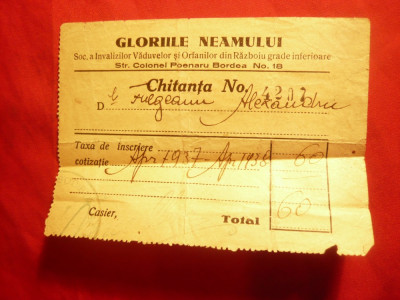 GLORIILE NEAMULUI
Soc. a Invalizilor Văduvelor și Orfanilor din Războiu grade inferioare
Str. Colonel Poenaru Bordea No. 18
Chitanța No. 4207
D Alexandru
Taxa de înscriere
cotizație Apr 1937 - Apr 1938 60
60
Casier,
Total